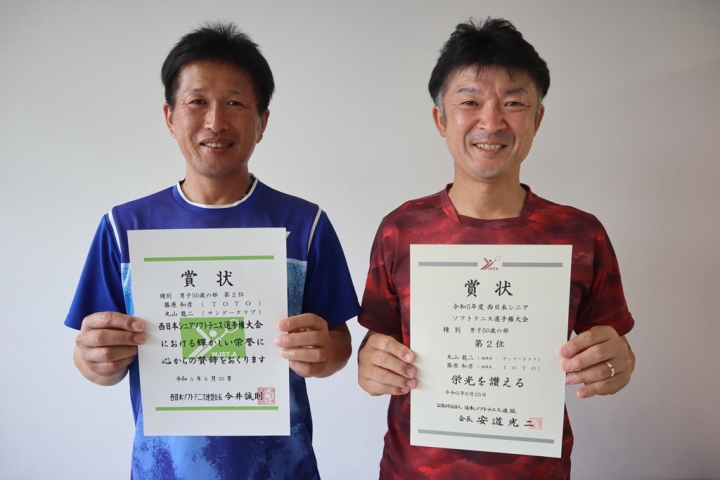 賞状
種別 男子50歳の部 第2位
篠原 和彦 (TOTO)
丸山 龍二 (サンデークラブ)
西日本シニアソフトテニス選手権大会
における輝かしい栄誉に
心からの賛辞をおくります
WJSTA
令和5年6月25日
西日本ソフトテニス連盟会長 今井誠則
賞状
令和5年度 西日本シニア
ソフトテニス選手権大会
種別 男子50歳の部
第2位
丸山 龍二 サンデークラブ)
篠原 和彦 TOTO)
栄光を讃える
令和5年6月25日
公益財団法人 日本ソフトテニス連盟
会長 安道光二